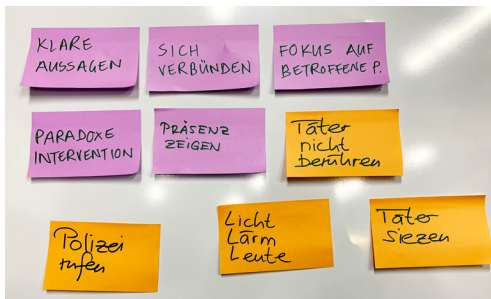 KLARE
AUSSAGEN
SICH
VERBÜNDEN
FOKUS AUF
BETROFFENE P.
PARADOXE
INTERVENTION
PRÄSENZ
ZEIGEN
Täter
nicht
berühren
Polizei
rufen
Licht
Lärm
Leute
Täter
siezen